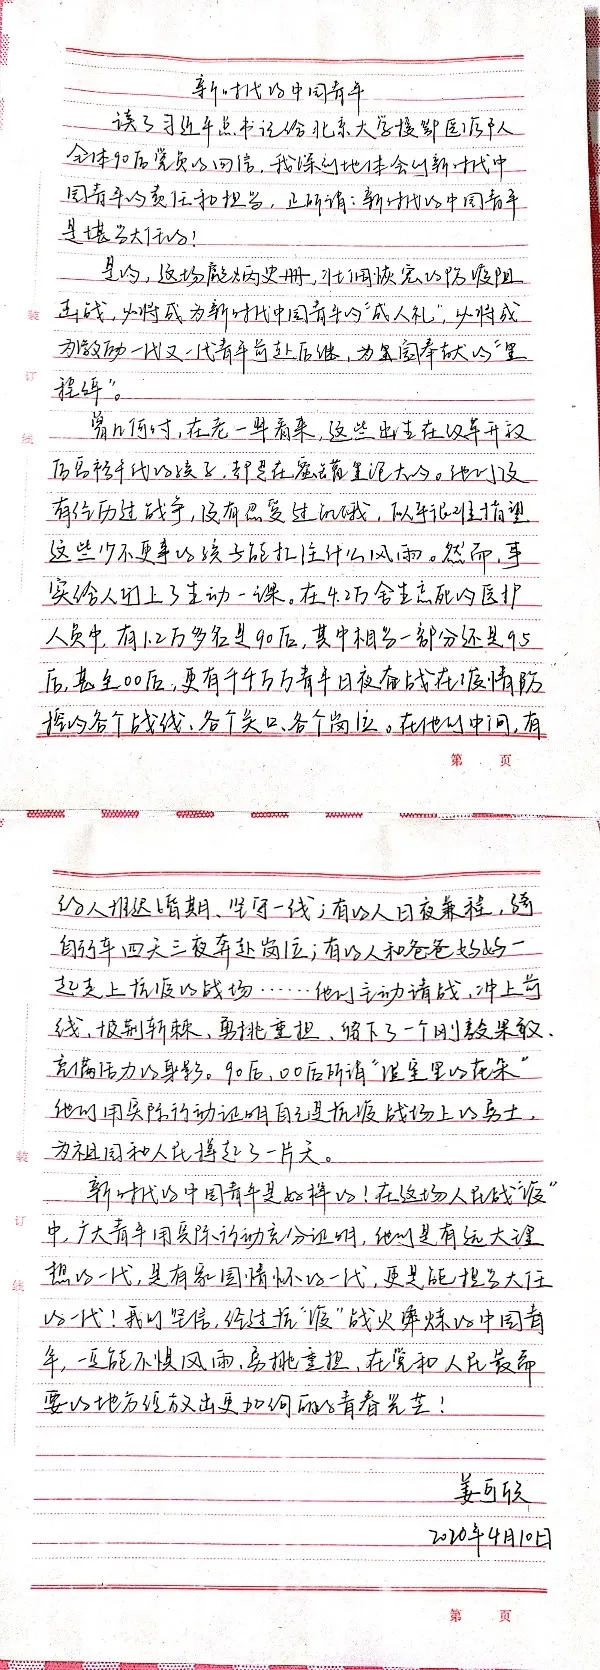 新时代的中国青年
读了习近平总书记给北京大学援鄂医疗队
全体90后党员的回信，我深刻地体会到新时代中
国青年的责任和担当，正所谓：新时代的中国青年
是堪当大任的！
是的，这场彪炳史册，壮阔恢宏的防疫阻
击战，必将成为新时代中国青年的“成人礼”，必将成
为激励一代又一代青年前赴后继，为国奉献的“里
程碑”。
曾几何时，在老一辈看来，这些出生在改革开放
后高福年代的孩子，都是在蜜罐里泡大的。他们没
有经历过战争，没有忍受过饥饿，似乎很难指望
这些少不更事的孩子能扛住什么风雨。然而，事
实给人们上了生动一课。在4.2万舍生忘死的医护
人员中，有1.2万多名是90后，其中相当一部分还是95
后，甚至00后，更有千千万万青年日夜奋战在疫情防
控的各个战线、各个关口、各个岗位。在他们中间，有
的人推迟婚期、坚守一线；有的人日夜兼程，骑
自行车四天三夜奔赴岗位；有的人和爸爸妈妈一
起走上抗疫的战场……他们主动请战，冲上前
线，披荆斩棘，勇挑重担，留下了一个刚毅果敢、
充满活力的身影。90后，00后所谓“温室里的花朵”
他们用实际行动证明自己是抗疫战场上的勇士，
为祖国和人民撑起了一片天。
新时代的中国青年是好样的！在这场人民战“疫”
中，广大青年用实际行动充分证明，他们是有远大理
想的一代，是有家国情怀的一代，更是能担当大任
的一代！我们坚信，经过抗“疫”战火淬炼的中国青
年，一定能不惧风雨，勇挑重担，在党和人民最需
要的地方绽放出更加绚丽的青春光芒！
姜可欣
2020年4月10日
装
订
线
第 页
装
订
线
第 页